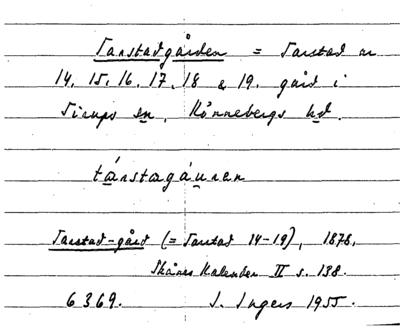 Tarstadgården = Tarstad nr
14, 15, 16, 17, 18 & 19. gård i
Sirups sn, Rönnebergs hd.
társtagáuren
Tarstad-gård (= Tarstad 14-19), 1878,
Skånes Kalender II s. 138.
6369. S. Ingers 1955.